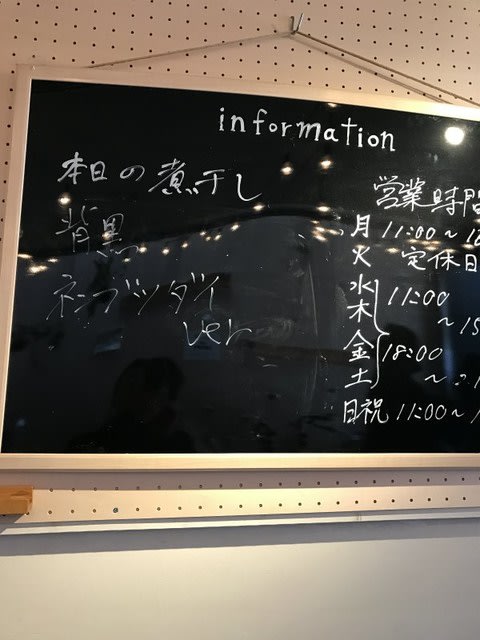 information
本日の煮干し
背黒
ネンブツダイ
ver
営業時間
月 11:00～
火 定休日
水 11:00
木 ～15
金 18:00
土 ～
日祝 11:00～